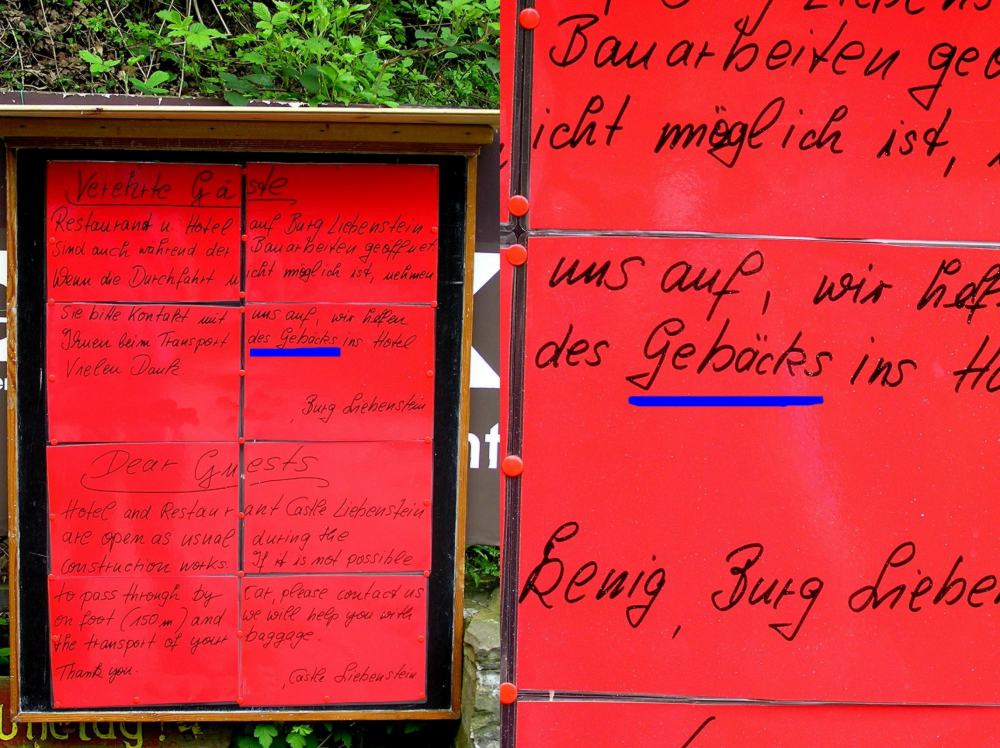 Verehrte Gäste
Restaurant u. Hotel auf Burg Liebenstein
sind auch während der Bauarbeiten geöffnet
Wenn die Durchfahrt nicht möglich ist, nehmen
Sie bitte Kontakt mit uns auf, wir helfen
Ihnen beim Transport des Gebäcks ins Hotel
Vielen Dank.
Burg Liebenstein
Dear Guests
Hotel and Restaurant Castle Liebenstein
are open as usual during the
construction works. If it is not possible
to pass through by car, please contact us
on foot (150 m) and we will help you with
the transport of your baggage.
Thank you.
Castle Liebenstein
Bauarbeiten geö
icht möglich ist,
uns auf, wir helf
des Gebäcks ins Ho
Burg Liebe